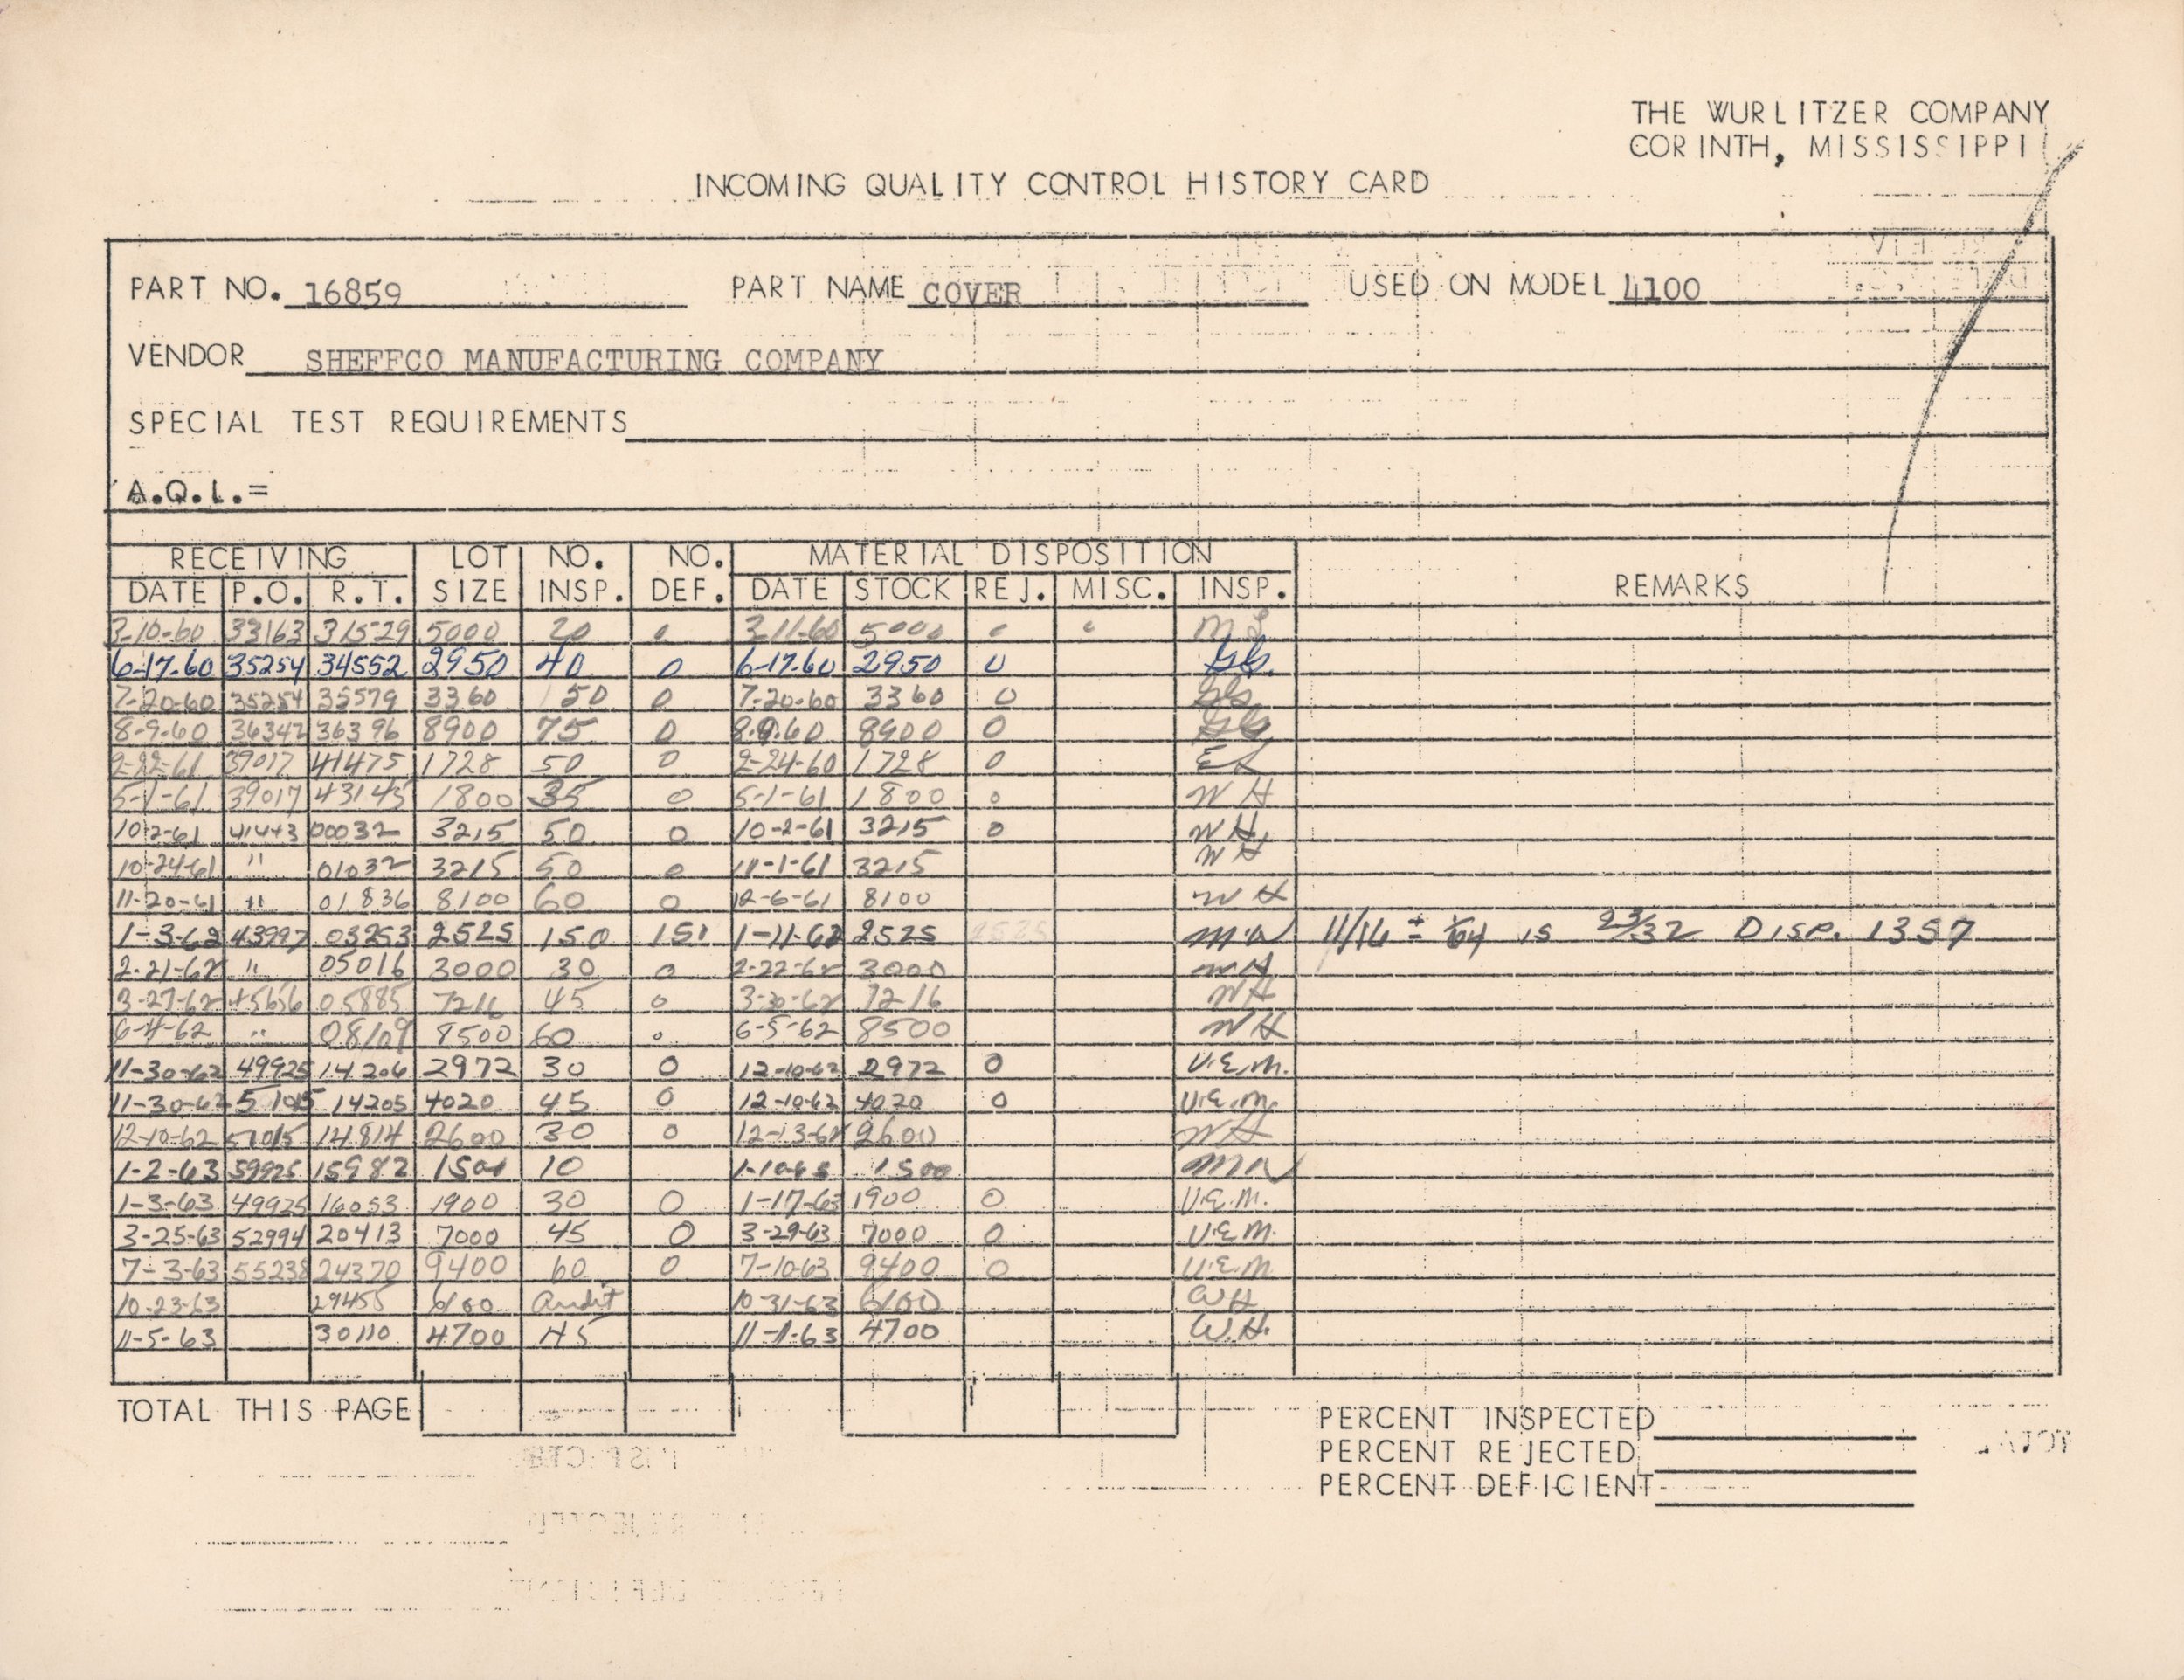 THE WURLITZER COMPANY
CORINTH, MISSISSIPPI
INCOMING QUALITY CONTROL HISTORY CARD
PART NO. 16859 PART NAME COVER USED ON MODEL 4100
VENDOR SHEFFCO MANUFACTURING COMPANY
SPECIAL TEST REQUIREMENTS
A.Q.L.=
RECEIVING LOT NO. NO. MATERIAL DISPOSITION
DATE P.O. R.T. SIZE INSP. DEF. DATE STOCK REJ. MISC. INSP. REMARKS
3-10-60 33163 31529 5000 20 0 3-11-60 5000 0 0
6-17-60 35254 34552 2950 40 0 6-17-60 2950 0
7-20-60 35254 35579 3360 50 0 7-20-60 3360 0
8-9-60 36342 36396 8900 75 0 8-9-60 8900 0
2-22-61 39017 41475 1728 50 0 2-24-60 1728 0
5-1-61 39017 43145 1800 35 0 5-1-61 1800 0 WH
10-2-61 41443 00032 3215 50 0 10-2-61 3215 0 WH
10-24-61 " 01032 3215 50 0 11-1-61 3215 WH
11-20-61 " 01836 8100 60 0 12-6-61 8100 WH
1-3-62 43997 03253 2525 150 151 1-11-62 2525 2525 11/16 ± 1/64 is 23/32 Disp. 1357
2-21-62 " 05016 3000 30 0 2-22-62 3000 WH
3-27-62 45656 05885 7216 45 0 3-30-62 7216 WH
6-4-62 " 08109 8500 60 0 6-5-62 8500 WH
11-30-62 49925 14206 2972 30 0 12-10-62 2972 0 V.E.M.
11-30-62 51015 14205 4020 45 0 12-10-62 4020 0 V.E.M.
12-10-62 51015 14814 2600 30 0 12-13-62 2600 WH
1-2-63 59925 15982 1501 10 1-10-63 1500
1-3-63 49925 16053 1900 30 0 1-17-63 1900 0 V.E.M.
3-25-63 52994 20413 7000 45 0 3-29-63 7000 0 V.E.M.
7-3-63 55238 24370 9400 60 0 7-10-63 9400 0 V.E.M.
10-23-63 29455 6100 Audit 10-31-63 6100 WH
11-5-63 30110 4700 45 11-11-63 4700 W.H.
TOTAL THIS PAGE
PERCENT INSPECTED
PERCENT REJECTED
PERCENT DEFICIENT